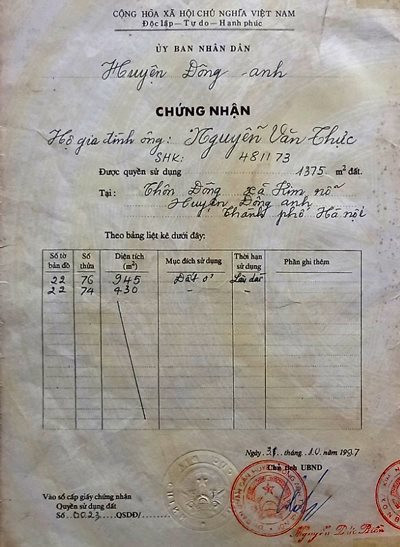 CỘNG HÒA XÃ HỘI CHỦ NGHĨA VIỆT NAM
Độc lập – Tự do – Hạnh phúc
ỦY BAN NHÂN DÂN
Huyện Đông anh
CHỨNG NHẬN
Hộ gia đình ông: Nguyễn Văn Thực
SHK: 481173
Được quyền sử dụng 1375 m² đất.
Tại: Thôn Đông xã Kim nỗ
Huyện Đông anh
Thành phố Hà nội
Theo bảng liệt kê dưới đây:
Số tờ bản đồ Số thửa Diện tích (m²) Mục đích sử dụng Thời hạn sử dụng Phần ghi thêm
22 76 945 Đất ở Lâu dài
22 74 430 – –
Ngày 31 tháng 10 năm 1997
Chủ tịch UBND
Vào sổ cấp giấy chứng nhận
Quyền sử dụng đất
Số 0023 QSDĐ/
Nguyễn Đức Biền